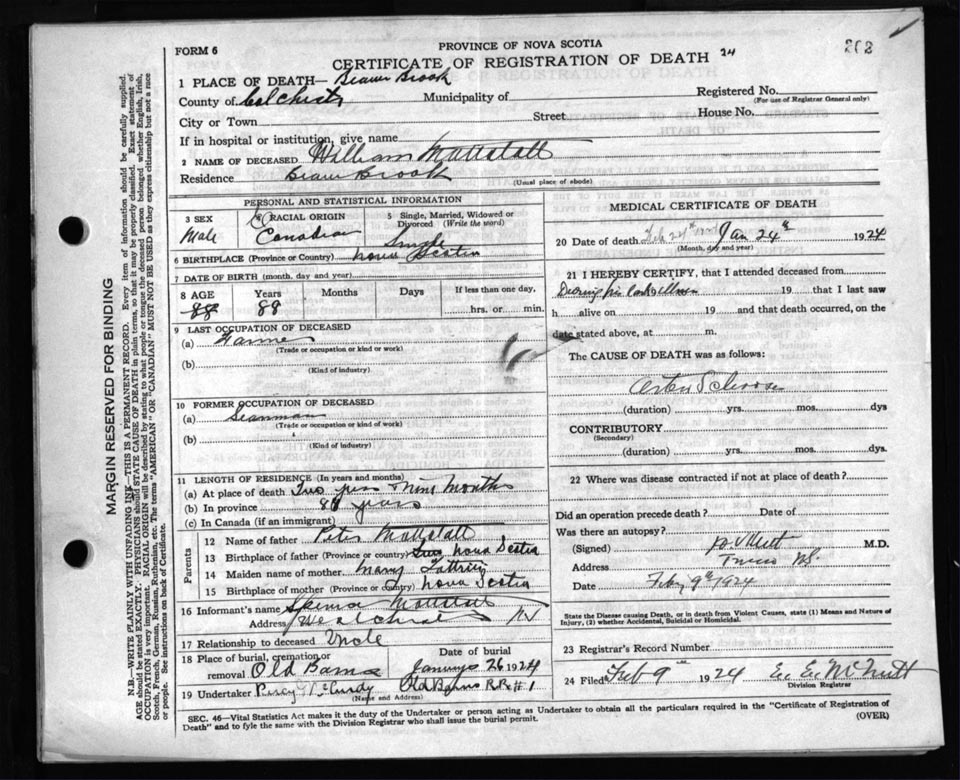 202
FORM 6
PROVINCE OF NOVA SCOTIA
CERTIFICATE OF REGISTRATION OF DEATH 24
1 PLACE OF DEATH— Beaver Brook
County of Colchester Municipality of
Registered No.
(For use of Registrar General only)
City or Town Street House No.
If in hospital or institution, give name
2 NAME OF DECEASED William Mattatall
Residence Beaver Brook
(Usual place of abode)
PERSONAL AND STATISTICAL INFORMATION
3 SEX
Male
4 RACIAL ORIGIN
Canadian
5 Single, Married, Widowed or Divorced (Write the word)
Single
6 BIRTHPLACE (Province or Country) Nova Scotia
7 DATE OF BIRTH (month, day and year)
8 AGE Years Months Days If less than one day,
88 88 hrs. or min.
9 LAST OCCUPATION OF DECEASED
(a) Farmer
(Trade or occupation or kind or work)
(b)
(Kind of industry)
10 FORMER OCCUPATION OF DECEASED
(a) Seaman
(Trade or occupation or kind of work)
(b)
(Kind of industry)
11 LENGTH OF RESIDENCE (In years and months)
(a) At place of death Two years Nine Months
(b) In province 88 years
(c) In Canada (if an immigrant)
Parents
12 Name of father Peter Mattatall
13 Birthplace of father (Province or country) Nova Scotia
14 Maiden name of mother Mary
15 Birthplace of mother (Province or country) Nova Scotia
16 Informant's name Mattatall
Address NS
17 Relationship to deceased Uncle
18 Place of burial, cremation or removal Old Barns
Date of burial
January 26 1924
19 Undertaker Percy McCurdy Old Barns R.R. #1
(Name and Address)
MEDICAL CERTIFICATE OF DEATH
20 Date of death Jan 24th 1924
(Month, day and year)
21 I HEREBY CERTIFY, that I attended deceased from
During his last illness 19 that I last saw
h alive on 19 and that death occurred, on the
date stated above, at m.
The CAUSE OF DEATH was as follows:
Arterio Sclerosis
(duration) yrs. mos. dys
CONTRIBUTORY
(Secondary)
(duration) yrs. mos. dys.
22 Where was disease contracted if not at place of death?
Did an operation precede death? Date of
Was there an autopsy?
(Signed) M.D.
Address Truro NS
Date Feby 9th 1924
State the Disease causing Death, or in death from Violent Causes, state (1) Means and Nature of Injury, (2) whether Accidental, Suicidal or Homicidal.
23 Registrar's Record Number
24 Filed Feb 9th 1924 McNutt
Division Registrar
SEC. 46—Vital Statistics Act makes it the duty of the Undertaker or person acting as Undertaker to obtain all the particulars required in the "Certificate of Registration of
Death" and to fyle the same with the Division Registrar who shall issue the burial permit.
(OVER)
MARGIN RESERVED FOR BINDING
N.B.—WRITE PLAINLY WITH UNFADING INK—THIS IS A PERMANENT RECORD. Every item of information should be carefully supplied.
AGE should be stated EXACTLY. PHYSICIANS should STATE CAUSE OF DEATH in plain terms, so that it may be properly classified. Exact statement of
OCCUPATION is very important. RACIAL ORIGIN will be described by stating to what people or tongue the deceased person belonged whether English, Irish,
Scotch, French, German, Russian, Ruthenian, etc. The terms "AMERICAN" or "CANADIAN" MUST NOT BE USED as they express citizenship but not a race
or people. See instructions on back of Certificate.